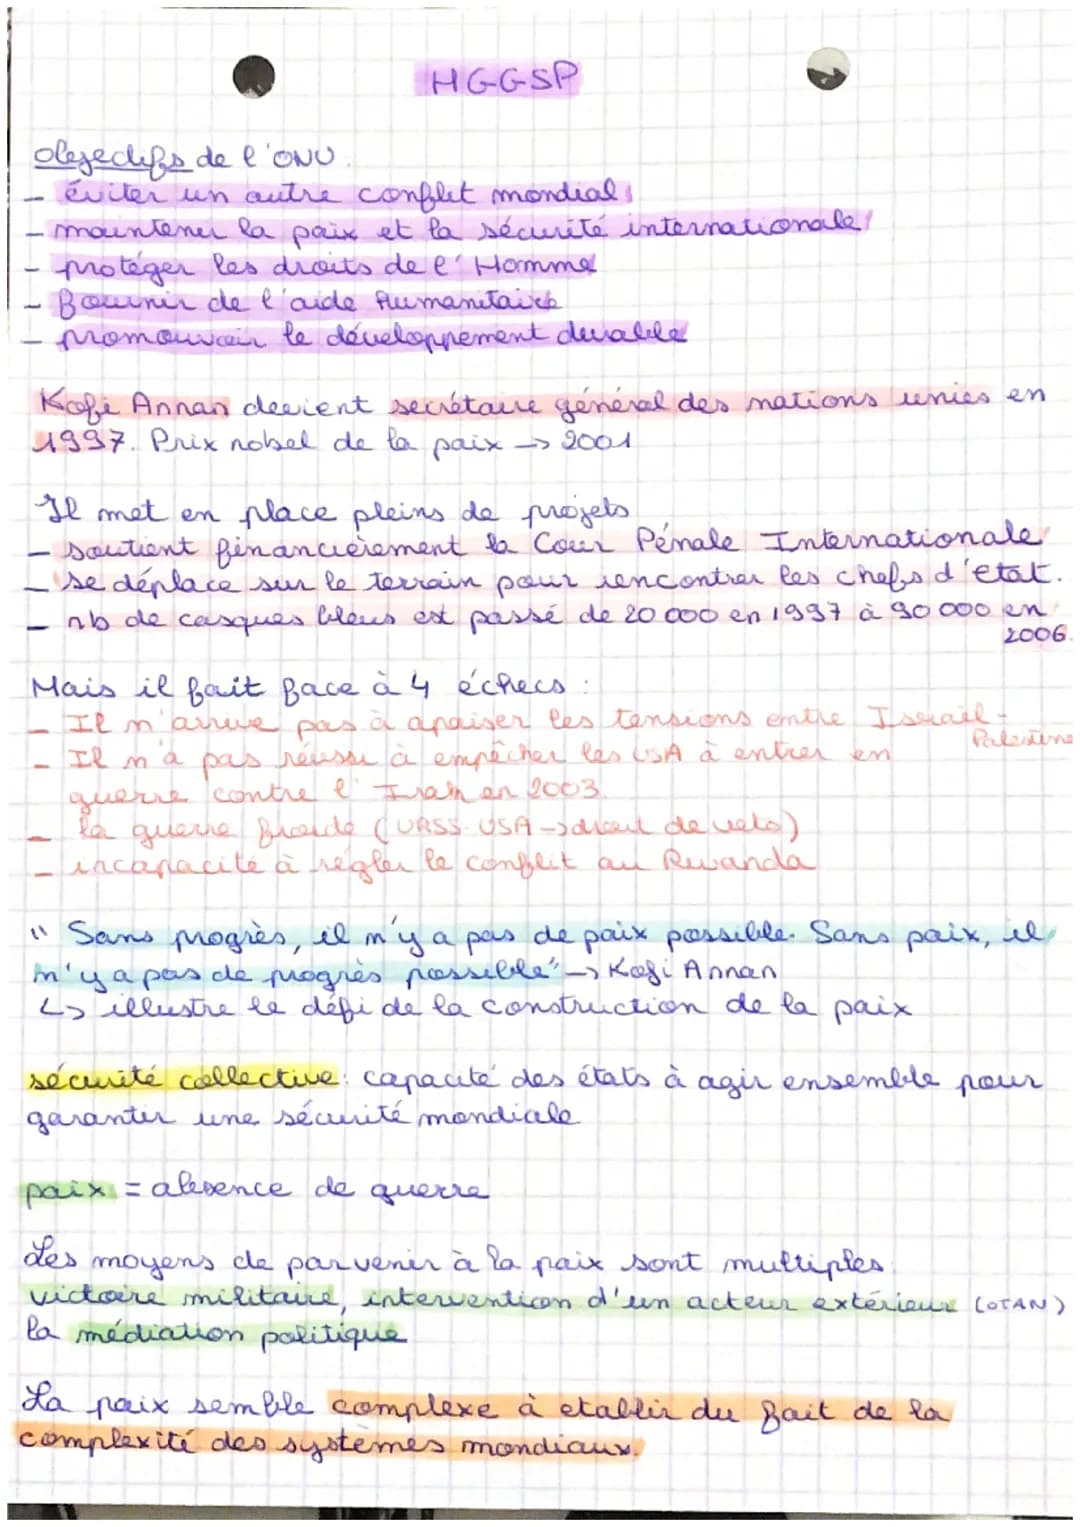 HGGSP
Objectifs de l'ONU
- éviter un autre conflit mondial
- maintenir la paix et la sécurité internationale
- protéger les droits de l'Homme
- Fournir de l'aide humanitaire
- promouvoir le développement durable
Kofi Annan devient secrétaire général des nations unies en
1997. Prix nobel de la paix -> 2001
Il met en place pleins de projets
- soutient financièrement la Cour Pénale Internationale
- se déplace sur le terrain pour rencontrer les chefs d'etat.
- nb de casques bleus est passé de 20 000 en 1997 à 90 000 en
2006.
Mais il fait face à 4 échecs :
- Il n'arrive pas à apaiser les tensions entre Israël-
Palestine
- Il n'a pas réussi à empêcher les USA à entrer en
guerre contre l' en 2003.
- la guerre froide (URSS USA -> droit de veto)
- incapacité à régler le conflit au Rwanda
" Sans progrès, il n'y a pas de paix possible. Sans paix, il
n'y a pas de progrès possible" -> Kofi Annan
↳ illustre le défi de la construction de la paix
sécurité collective: capacité des états à agir ensemble pour
garantir une sécurité mondiale
paix = absence de guerre
Les moyens de parvenir à la paix sont multiples
victoire militaire, intervention d'un acteur extérieur (OTAN)
la médiation politique
La paix semble complexe à etablir du fait de la
complexité des systèmes mondiaux.